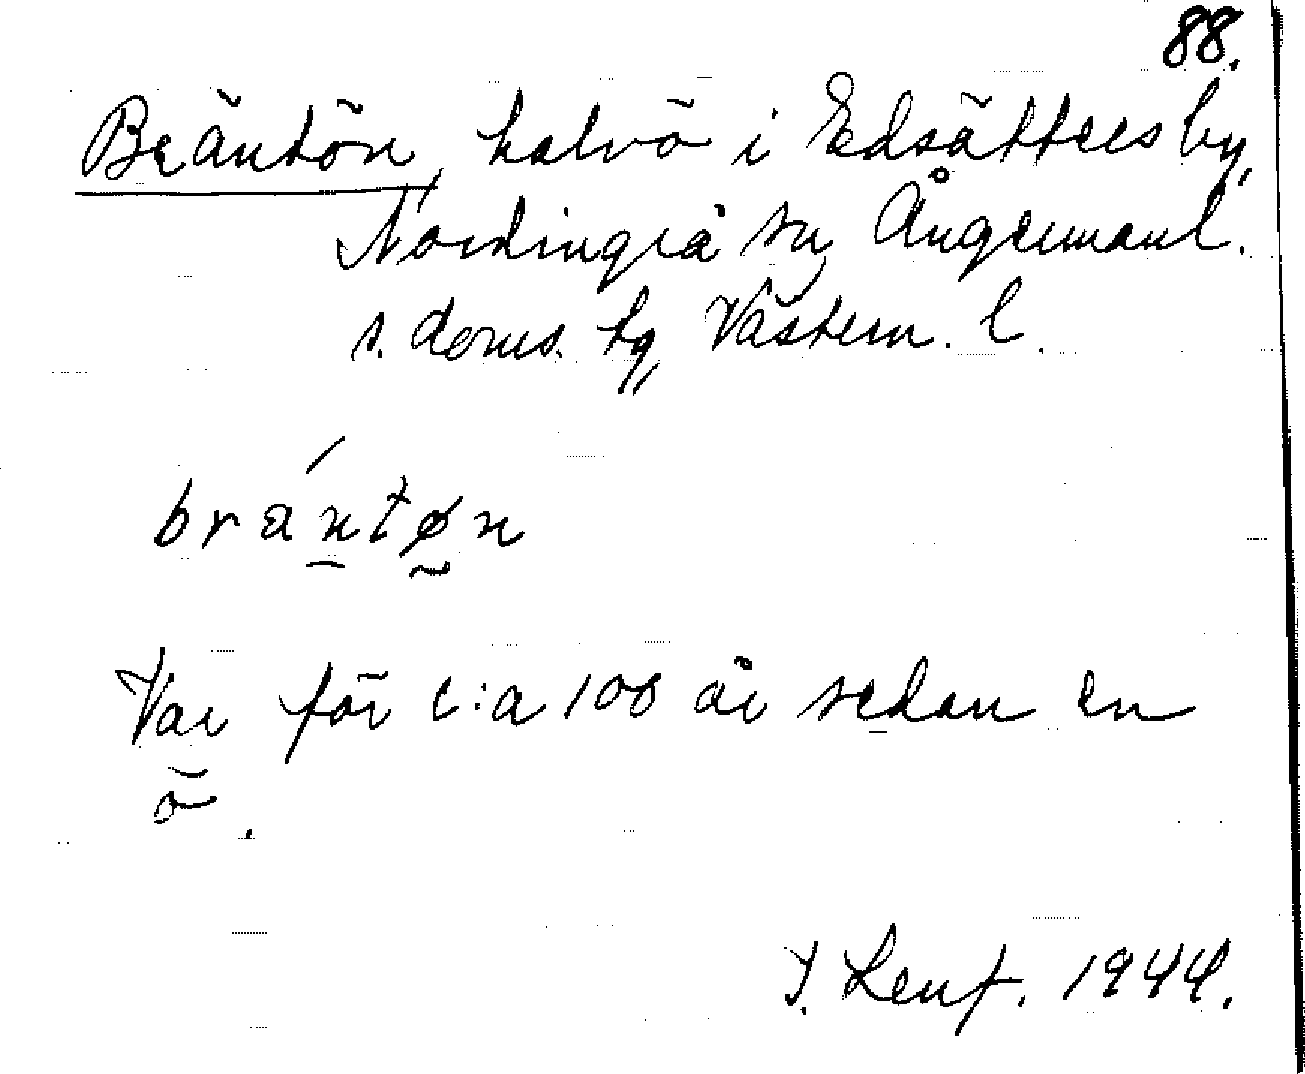 88.
Bräntön, halvö i Edsätters by,
Nordingrå sn, Ångermanl.
s. doms. hg, Västern. l.
bräntøn
Var för c:a 100 år sedan en
ö.
1944.